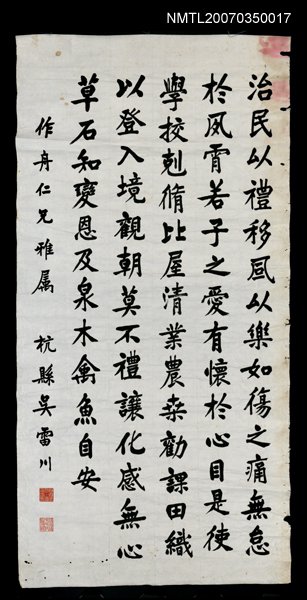 NMTL20070350017
治民以禮移風以樂如傷之痛無怠
於夙宵若子之愛有懷於心目是使
學校剋脩比屋清業農桒勸課田織
以登入境觀朝莫不禮讓化感無心
草石知變恩及泉木禽魚自安
作舟仁兄雅屬 杭縣吳雷川